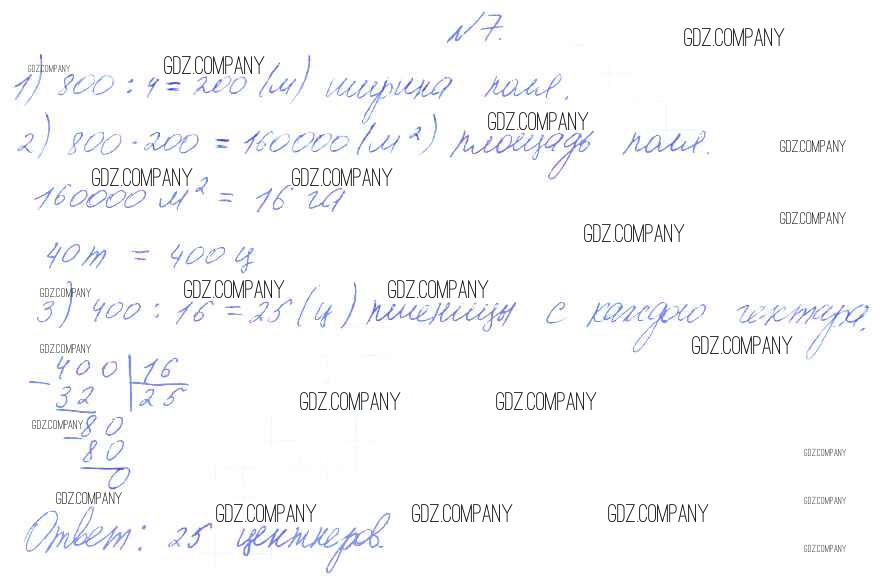 №7.
GDZ.COMPANY
GDZ.COMPANY GDZ.COMPANY
1) 800 : 4 = 200 (м) ширина поля.
GDZ.COMPANY
2) 800 · 200 = 160000 (м²) площадь поля.
GDZ.COMPANY
GDZ.COMPANY GDZ.COMPANY
160000 м² = 16 га
GDZ.COMPANY
GDZ.COMPANY
40 т = 400 ц
GDZ.COMPANY GDZ.COMPANY GDZ.COMPANY
3) 400 : 16 = 25 (ц) пшеницы с каждого гектара.
GDZ.COMPANY GDZ.COMPANY
_400 | 16
32 | 25
GDZ.COMPANY GDZ.COMPANY
GDZ.COMPANY _80
80
GDZ.COMPANY
0
GDZ.COMPANY GDZ.COMPANY
GDZ.COMPANY GDZ.COMPANY GDZ.COMPANY
Ответ: 25 центнеров.
GDZ.COMPANY